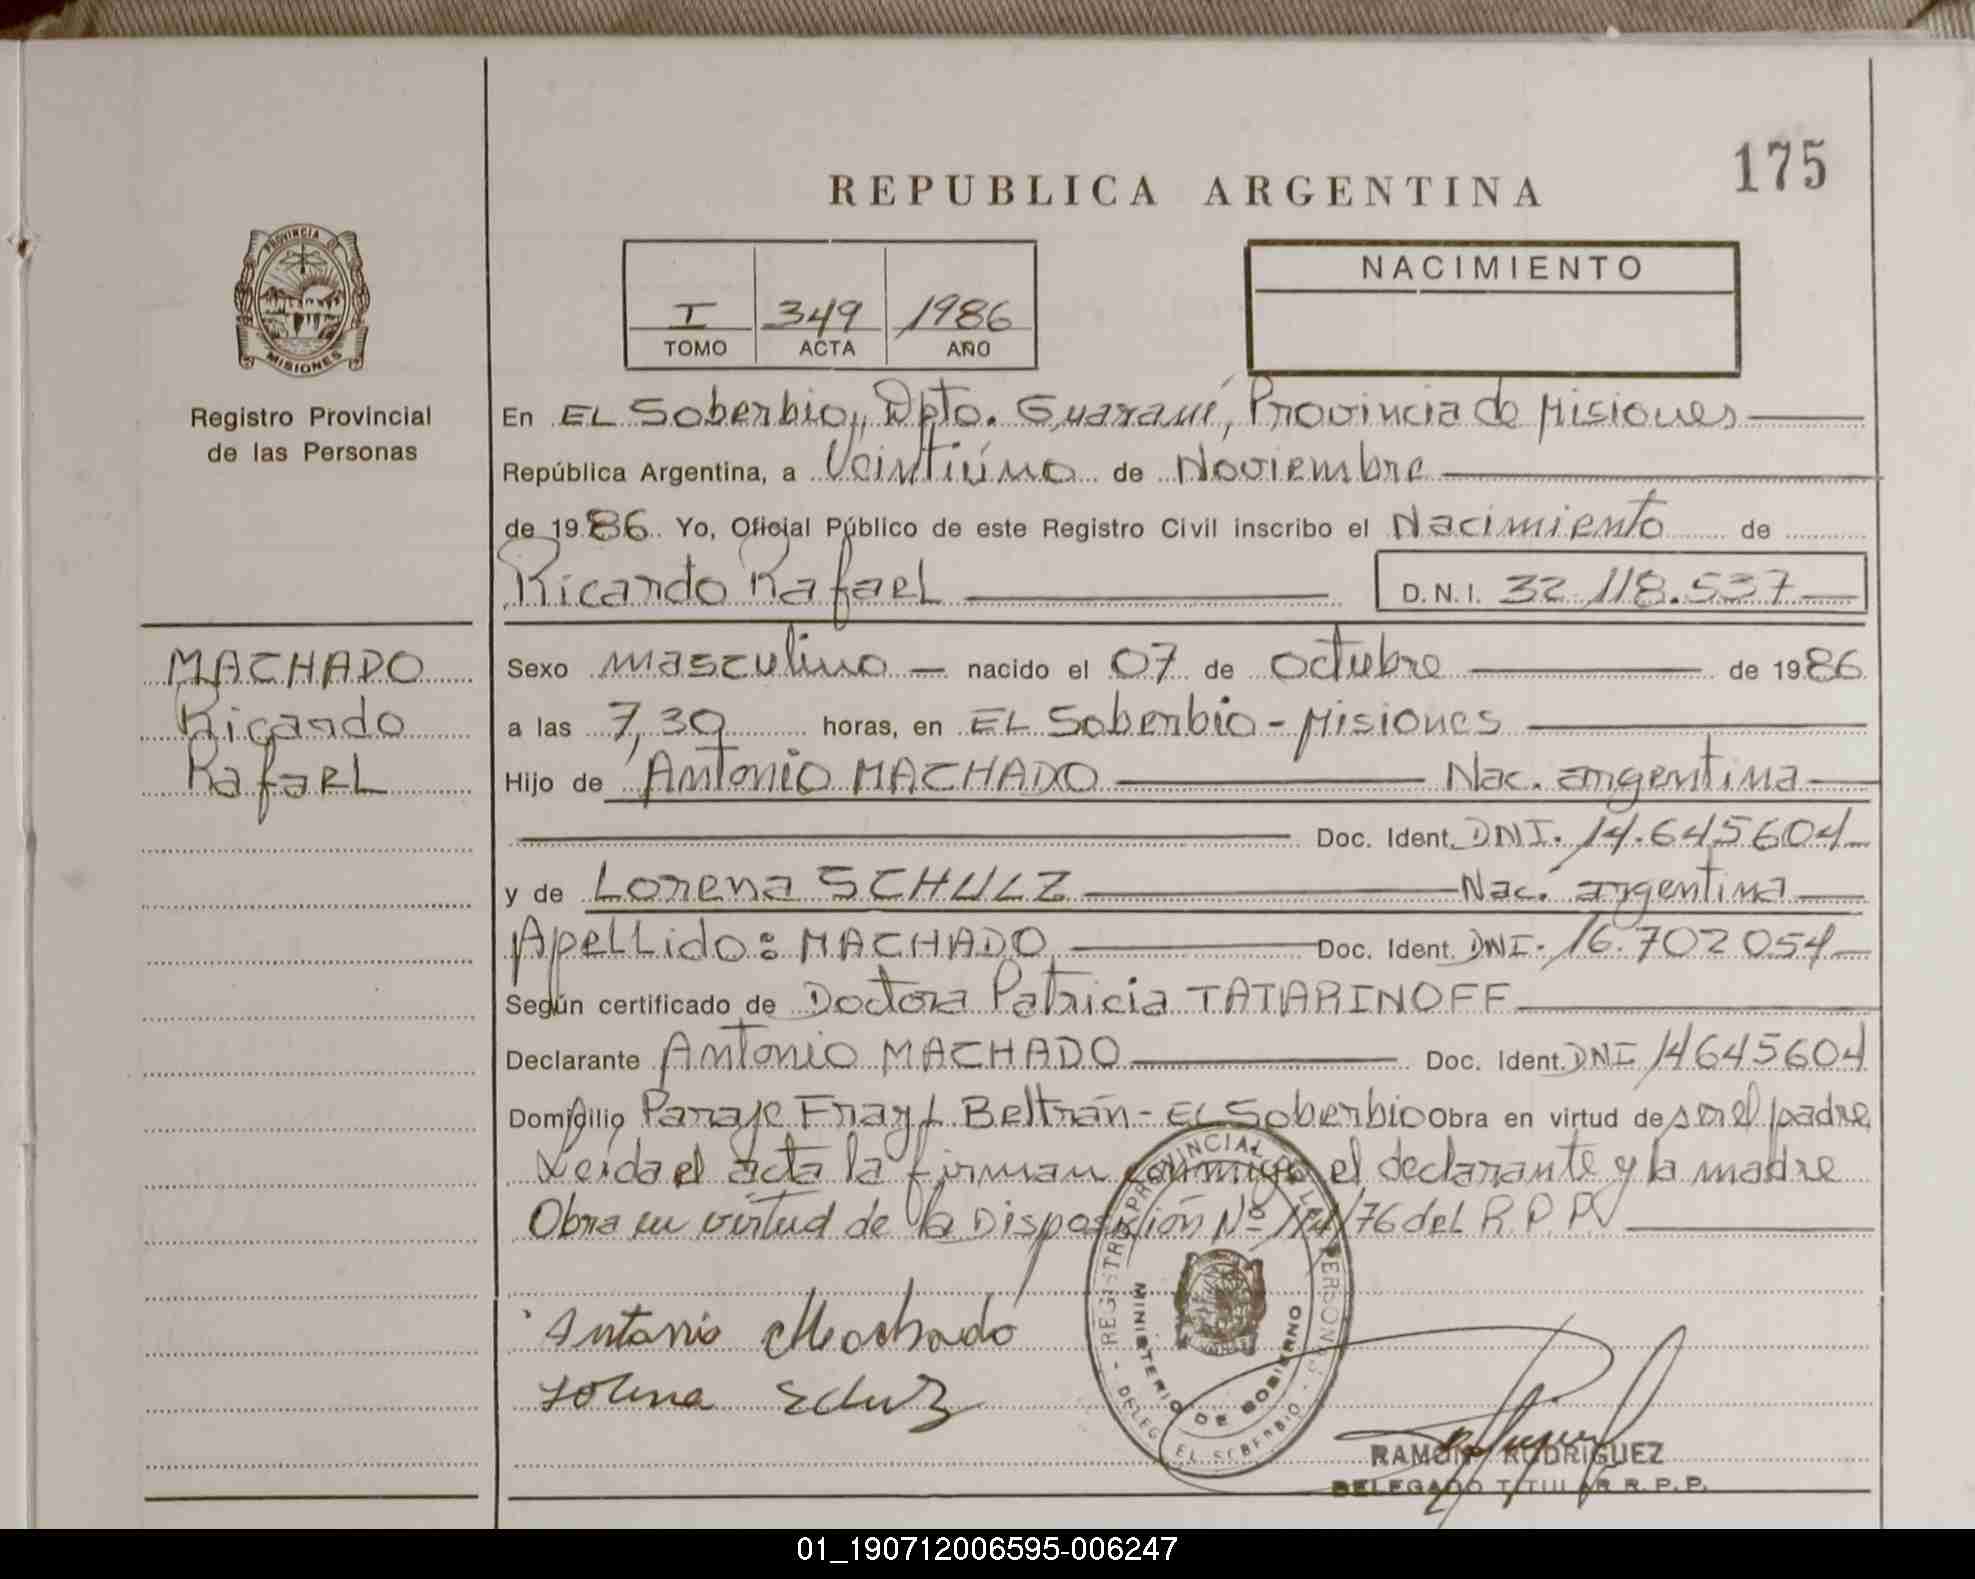 175
REPUBLICA ARGENTINA
PROVINCIA DE
MISIONES
Registro Provincial
de las Personas
I 349 1986
TOMO ACTA AÑO
NACIMIENTO
En EL Soberbio, Dpto. Guaraní, Provincia de Misiones
República Argentina, a Veintiúno de Noviembre
de 1986 Yo, Oficial Público de este Registro Civil inscribo el Nacimiento de
Ricardo Rafael D.N.I. 32.118.537
MACHADO
Ricardo
Rafael
Sexo masculino nacido el 07 de octubre de 1986
a las 7,30 horas, en EL Soberbio - Misiones
Hijo de Antonio MACHADO Nac. argentina
Doc. Ident. DNI. 14.645604
y de Lorena SCHULZ Nac. argentina
Apellido: MACHADO Doc. Ident. DNI. 16.702054
Según certificado de Doctora Patricia TATARINOFF
Declarante Antonio MACHADO Doc. Ident. DNI 14645604
Domicilio Paraje Fray L Beltrán - EL Soberbio Obra en virtud de ser el padre
Leida el acta la firman conmigo el declarante y la madre
Obra en virtud de la Disposición Nº /76 del R.P.P.
Antonio Machado
REGISTRO PROVINCIAL DE LAS PERSONAS
MINISTERIO DE GOBIERNO
DELEG. EL SOBERBIO
RAMON RODRIGUEZ
DELEGADO TITULAR R.P.P.
01_190712006595-006247